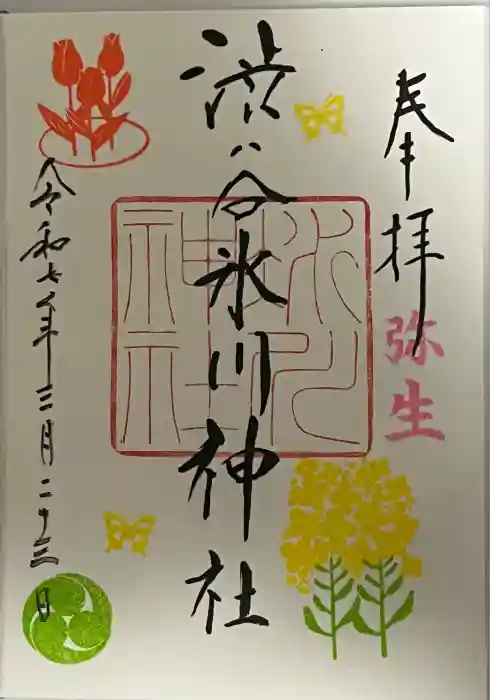 奉拝
弥生
渋谷氷川神社
氷川神社
令和七年三月二十三日